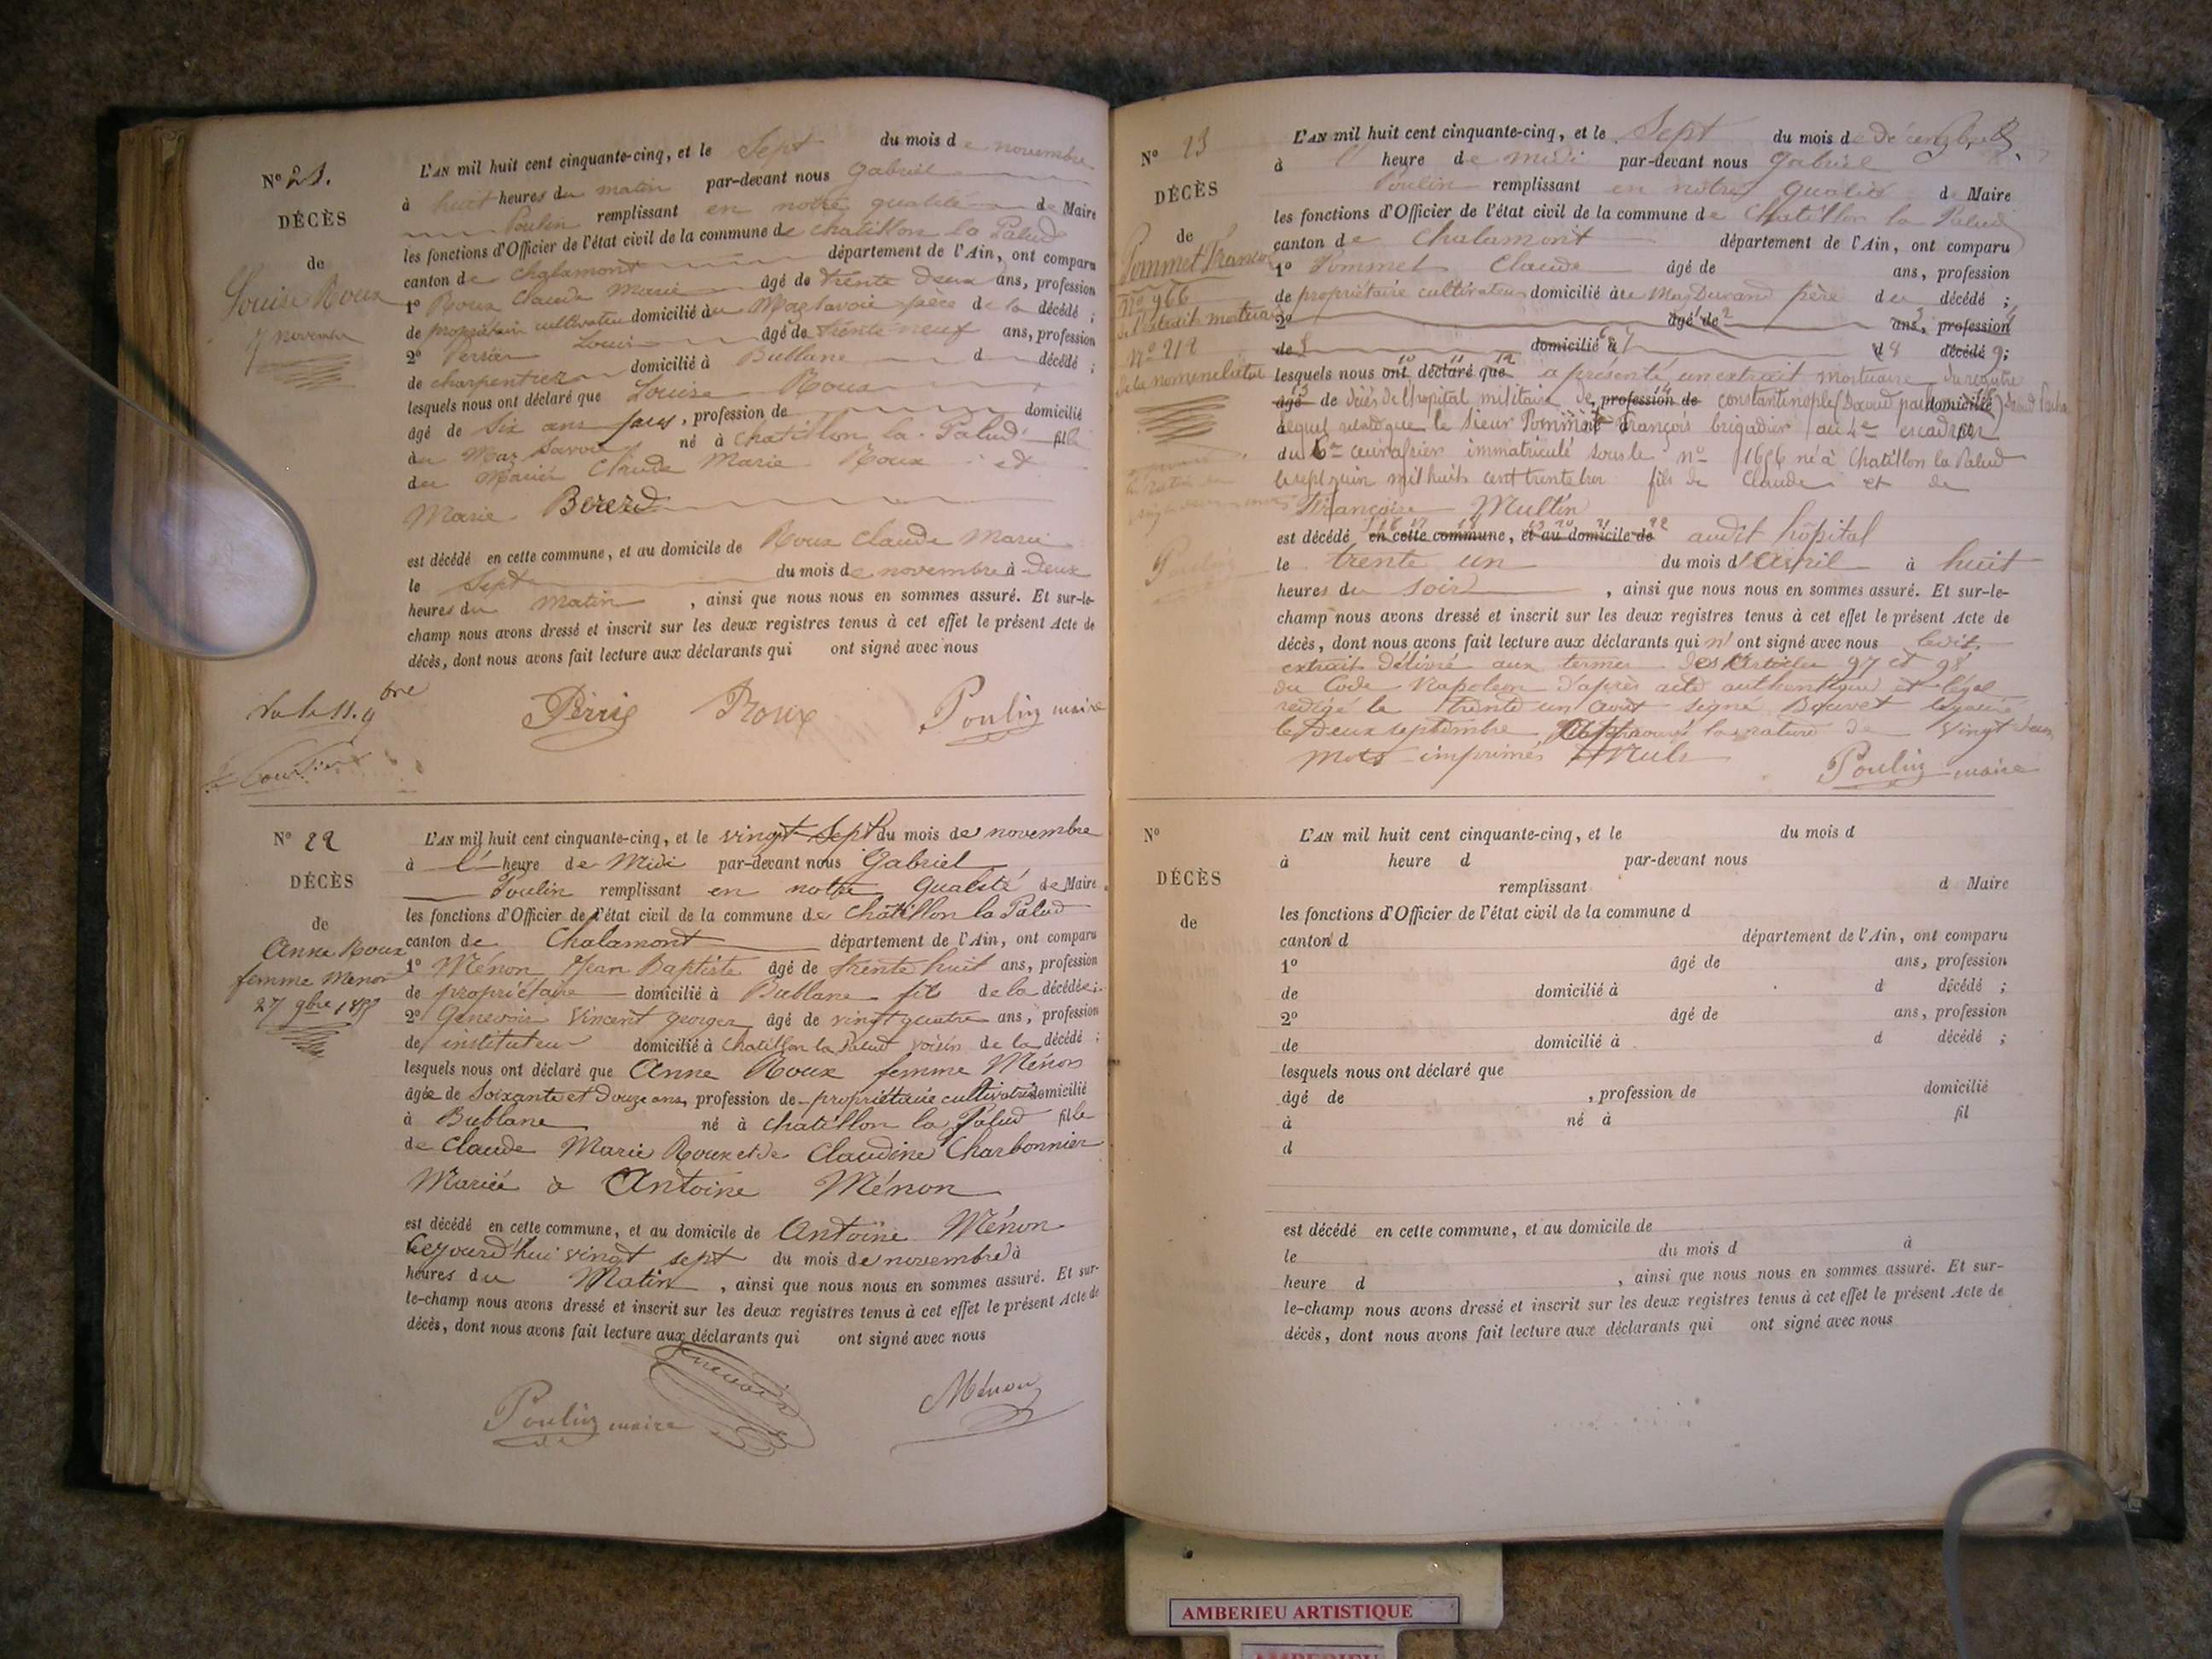 N° 21.
DÉCÈS
de
Louise Roux
7 novembre
L'AN mil huit cent cinquante-cinq, et le Sept du mois de novembre
à huit heures du matin par-devant nous Gabriel
Poulin remplissant en notre qualité de Maire
les fonctions d'Officier de l'état civil de la commune de Chatillon la Palud
canton de Chalamont département de l'Ain, ont comparu
1° Roux Claude Marie âgé de trente deux ans, profession
de propriétaire cultivateur domicilié au Mas Savoie père de la décédé ;
2° Perrier Louis âgé de trente neuf ans, profession
de charpentier domicilié à Bublane d décédé ;
lesquels nous ont déclaré que Louise Roux
âgé de six ans jours, profession de domicilié
au Mas Savoie né à Chatillon la Palud fille
de Marié Claude Marie Roux et
Marie Bererd
est décédé en cette commune, et au domicile de Roux Claude Marie
le Sept du mois de novembre à deux
heures du matin , ainsi que nous nous en sommes assuré. Et sur-le-
champ nous avons dressé et inscrit sur les deux registres tenus à cet effet le présent Acte de
décès, dont nous avons fait lecture aux déclarants qui ont signé avec nous
Roux Poulin maire
N° 22
DÉCÈS
de
Anne Roux
femme Menon
27 9bre 1855
L'AN mil huit cent cinquante-cinq, et le vingt Sept du mois de novembre
à l' heure de Midi par-devant nous Gabriel
Poulin remplissant en notre qualité de Maire
les fonctions d'Officier de l'état civil de la commune de Châtillon la Palud
canton de Chalamont département de l'Ain, ont comparu
1° Ménon Jean Baptiste âgé de trente huit ans, profession
de propriétaire domicilié à Bublane fils de la décédée ;
2° Genevois Vincent georges âgé de vingt quatre ans, profession
de instituteur domicilié à Chatillon la Palud voisin de la décédé ;
lesquels nous ont déclaré que Anne Roux femme Ménon
âgée de Soixante et Douze ans, profession de propriétaire cultivatrice domicilié
à Bublane né à chatillon la Palud fille
de Claude Marie Roux et de Claudine Charbonnier
Mariée à Antoine Ménon
est décédé en cette commune, et au domicile de Antoine Ménon
Cejourd'hui vingt sept du mois de novembre à
heures du Matin , ainsi que nous nous en sommes assuré. Et sur-
le-champ nous avons dressé et inscrit sur les deux registres tenus à cet effet le présent Acte de
décès, dont nous avons fait lecture aux déclarants qui ont signé avec nous
Poulin maire Ménon
N° 23
DÉCÈS
de
Pommet François
N° 966
de l'extrait mortuaire
N° 212
de la nomenclature
L'AN mil huit cent cinquante-cinq, et le Sept du mois de décembre
à l' heure de midi par-devant nous Gabriel
Poulin remplissant en notre qualité d Maire
les fonctions d'Officier de l'état civil de la commune de Chatillon la Palud
canton de Chalamont département de l'Ain, ont comparu
1° Pommet Claude âgé de ans, profession
de propriétaire cultivateur domicilié au Mas Durand père du décédé ;
2° âgé de ans, profession
de domicilié à d décédé ;
lesquels nous ont déclaré que a présenté un extrait mortuaire du registre
âgé de décès de l'hopital militaire de profession de constantinople domicilié
lequel relate que le Sieur Pommet François brigadier au 4e escadron
du 6e cuirassier immatriculé sous le n° 1656 né à Chatillon la Palud
le sept juin mil huit cent trente trois fils de Claude et de
Françoise Multin
est décédé en cette commune, et au domicile de audit hôpital
le trente un du mois d' à huit
heures du soir , ainsi que nous nous en sommes assuré. Et sur-le-
champ nous avons dressé et inscrit sur les deux registres tenus à cet effet le présent Acte de
décès, dont nous avons fait lecture aux déclarants qui n' ont signé avec nous ledit
extrait délivré aux termes des Articles 97 et 98
du Code Napoleon d'après acte authentique et légal
redigé le trente un Aout signé Bouvet légalisé
le deux septembre Approuvé la rature de vingt deux
mots imprimés Nuls
Poulin maire
N°
DÉCÈS
de
L'AN mil huit cent cinquante-cinq, et le du mois d
à heure d par-devant nous
remplissant d Maire
les fonctions d'Officier de l'état civil de la commune d
canton d département de l'Ain, ont comparu
1° âgé de ans, profession
de domicilié à d décédé ;
2° âgé de ans, profession
de domicilié à d décédé ;
lesquels nous ont déclaré que
âgé de , profession de domicilié
à né à fil
d
est décédé en cette commune, et au domicile de
le du mois d à
heure d , ainsi que nous nous en sommes assuré. Et sur-
le-champ nous avons dressé et inscrit sur les deux registres tenus à cet effet le présent Acte de
décès, dont nous avons fait lecture aux déclarants qui ont signé avec nous
AMBERIEU ARTISTIQUE
AMBERIEU